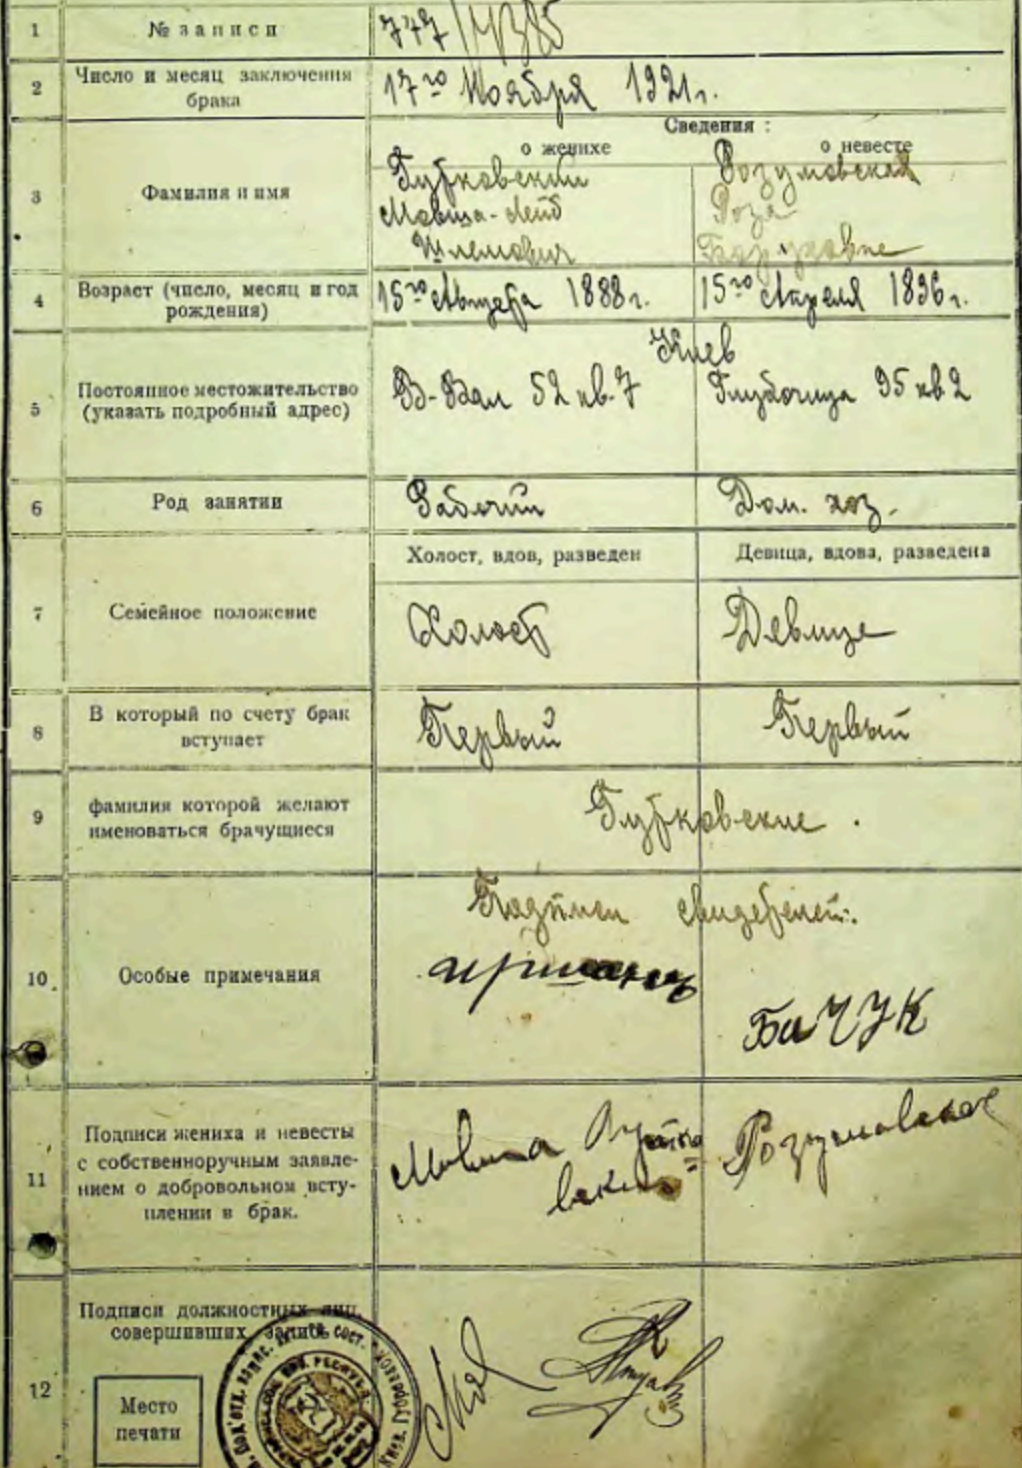 1 № записи 747/
2 Число и месяц заключения
брака
17го Ноября 1921г.
Сведения :
о женихе о невесте
3 Фамилия и имя
Гутковский Розумовская
Мовша-Лейб Роза
Шлемович
4 Возраст (число, месяц и год
рождения)
15го Августа 1888г. 15го Апреля 1896г.
Киев
5 Постоянное местожительство
(указать подробный адрес)
В-Вал 52 кв. 7 Глубочица 95 кв 2
6 Род занятии Рабочий Дом. хоз.
Холост, вдов, разведен Девица, вдова, разведена
7 Семейное положение Холост Девица
8 В который по счету брак
вступает
Первый Первый
9 фамилия которой желают
именоваться брачущиеся
Гутковские.
Подписи свидетелей:
10 Особые примечания
БаЧУК
11 Подписи жениха и невесты
с собственноручным заявле-
нием о добровольном всту-
плении в брак.
Мовша Гутко
вский Розумовская
12 Подписи должностных лиц,
совершивших запись
Место
печати